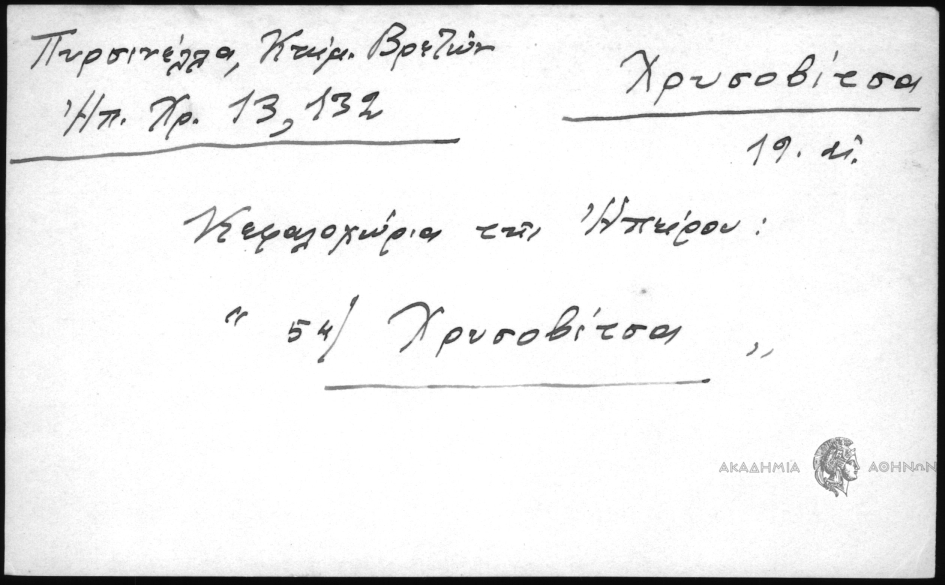 Πυρσινέλλα, Κτημ. Βρετών
Ἠπ. Χρ. 13, 132
Χρυσοβίτσα
19. αἰ.
Κεφαλοχώρια τῆς Ἠπείρου :
" 54) Χρυσοβίτσα "
ΑΚΑΔΗΜΙΑ ΑΘΗΝΩΝ